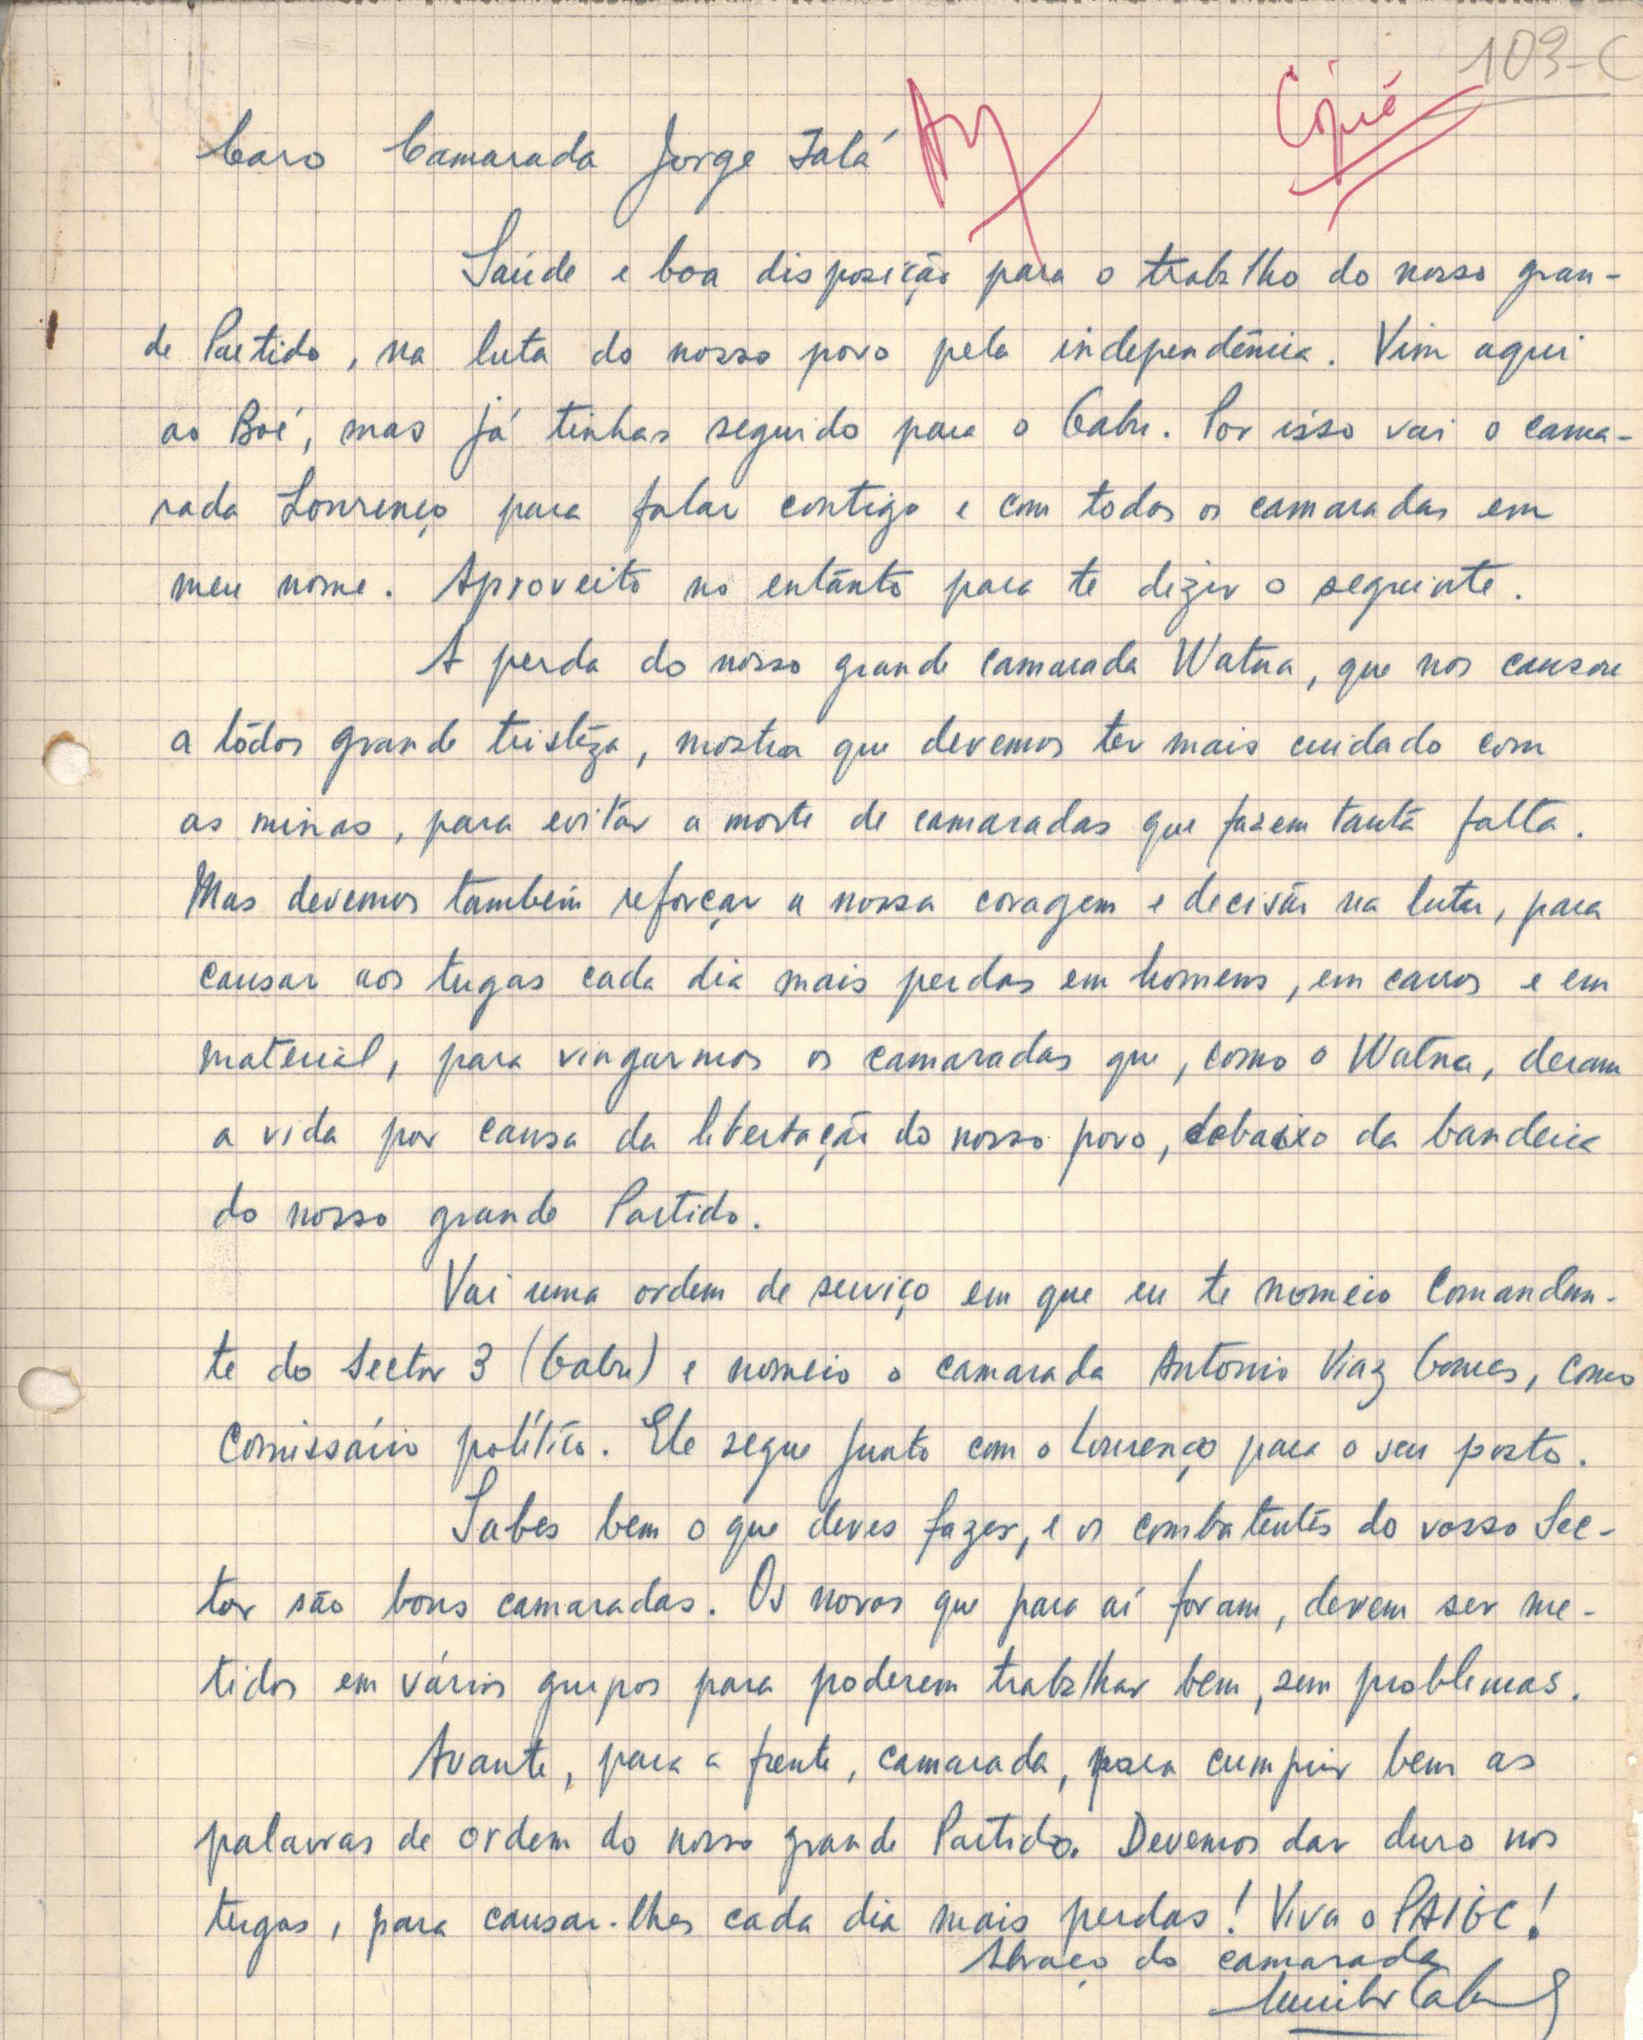 103-C
Cópia
Caro Camarada Jorge Talá
Saúde e boa disposição para o trabalho do nosso gran-
de Partido, na luta do nosso povo pela independência. Vim aqui
ao Boé, mas já tinhas seguido para o Gabu. Por isso vai o cama-
rada Lourenço para falar contigo e com todos os camaradas em
meu nome. Aproveito no entanto para te dizer o seguinte.
A perda do nosso grande camarada Watna, que nos causou
a tôdos grande tristêza, mostra que devemos ter mais cuidado com
as minas, para evitar a morte de camaradas que fazem tanta falta.
Mas devemos também reforçar a nossa coragem e decisão na luta, para
causar aos tugas cada dia mais perdas em homens, em carros e em
material, para vingarmos os camaradas que, como o Watna, deram
a vida por causa da libertação do nosso povo, debaixo da bandeira
do nosso grande Partido.
Vai uma ordem de serviço em que eu te nomeio Comandan-
te do Sector 3 (Gabu) e nomeio o camarada Antonio Viaz Gomes, como
Comissário político. Ele segue junto com o Lourenço para o seu posto.
Sabes bem o que deves fazer, e os combatentes do vosso Sec-
tor são bons camaradas. Os novos que para aí foram, devem ser me-
tidos em vários grupos para poderem trabalhar bem, sem problemas.
Avante, para a frente, camarada, para cumprir bem as
palavras de ordem do nosso grande Partido. Devemos dar duro nos
tugas, para causar-lhes cada dia mais perdas! Viva o PAIGC!
Abraço do camarada
Amilcar Cabral